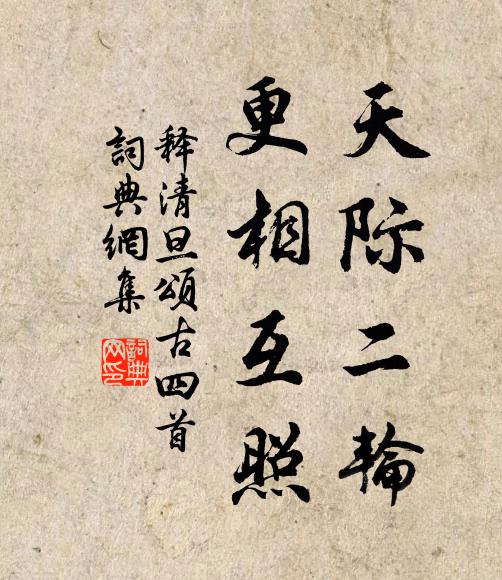 天际二輪
更相互照
释清旦頌古四首
詞典網集
詞典网印